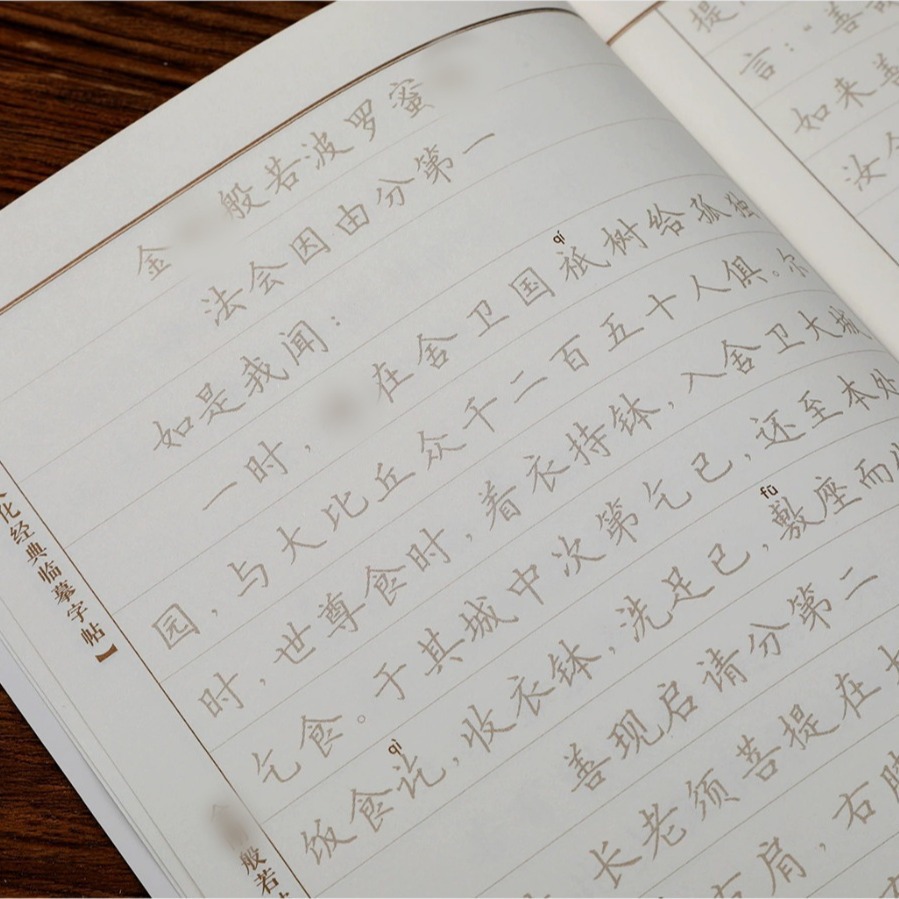 金 般若波罗蜜
法会因由分第一
如是我闻:
qí
一时, 在舍卫国祇树给孤独
园,与大比丘众千二百五十人俱。尔
时,世尊食时,着衣持钵,入舍卫大城
乞食。于其城中次第乞已,还至本处
qì fū
饭食讫,收衣钵,洗足已,敷座而
善现启请分第二
长老须菩提在
右肩,右
化经典临摹字帖】
般若
提
言:善
如来善
汝